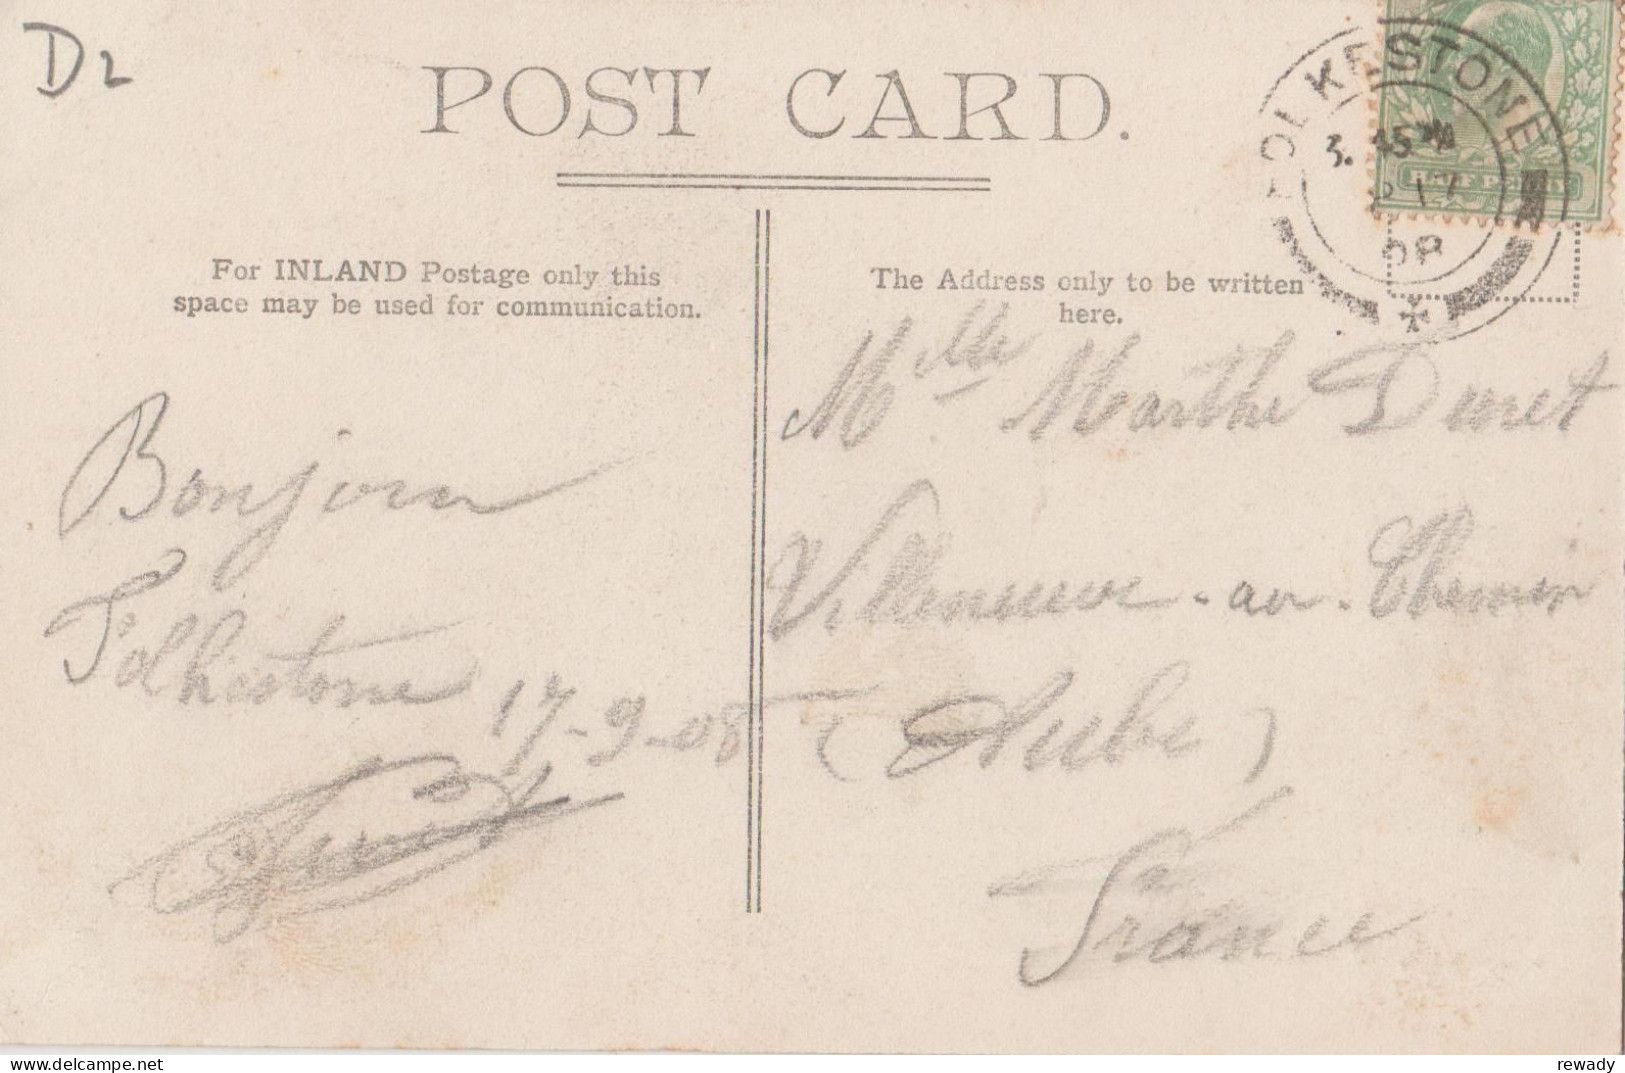 D2
POST CARD.
FOLKESTONE
3. 45 PM
17
08
HALF PENNY
For INLAND Postage only this
space may be used for communication.
The Address only to be written
here.
Bonjour
Folkestone
17-9-08
Duret
Mlle Marthe Duret
Villeneuve-au-Chemin
(Aube)
France
delcampe.net
rewady